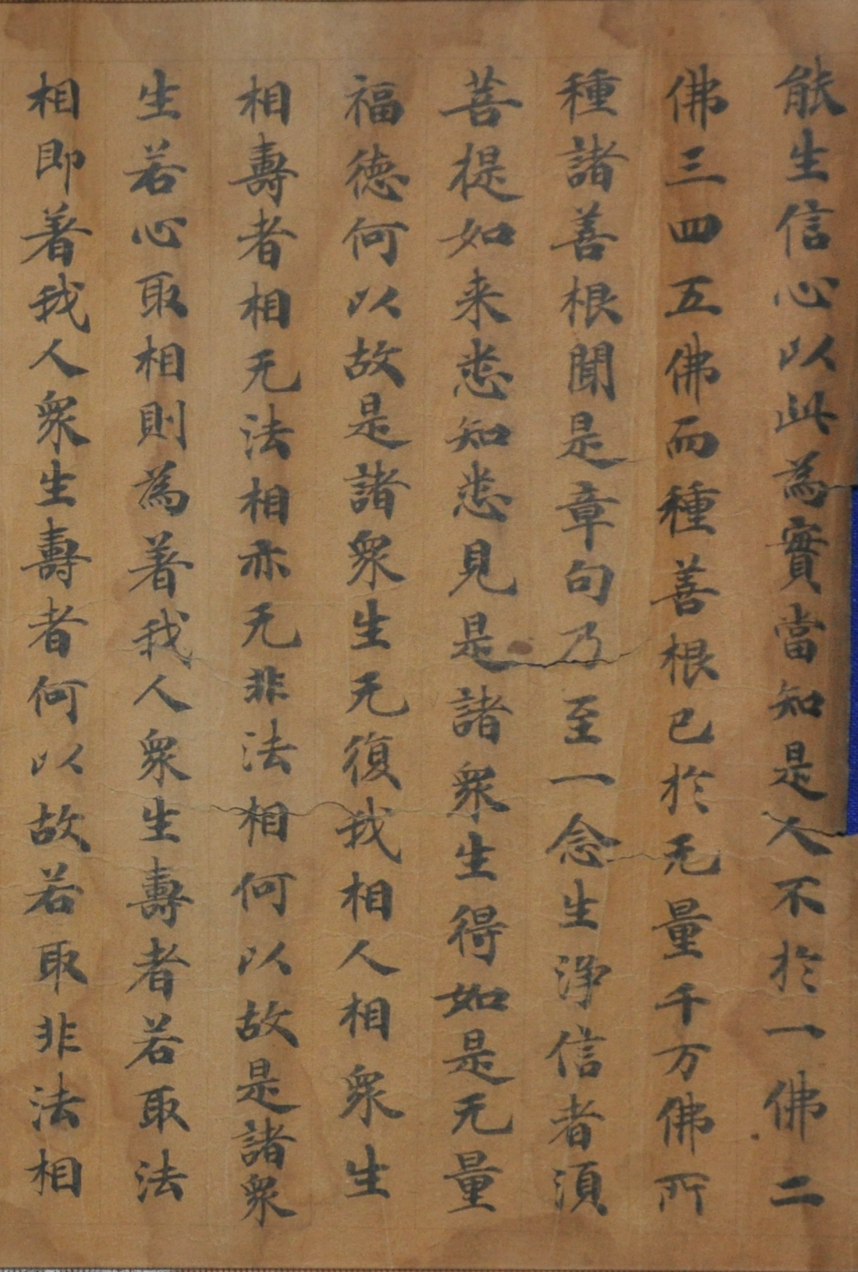 能生信心以此為實當知是人不於一佛二
佛三四五佛而種善根已於无量千万佛所
種諸善根聞是章句乃至一念生淨信者須
菩提如来悉知悉見是諸衆生得如是无量
福徳何以故是諸衆生无復我相人相衆生
相壽者相无法相亦无非法相何以故是諸衆
生若心取相則為著我人衆生壽者若取法
相即著我人衆生壽者何以故若取非法相